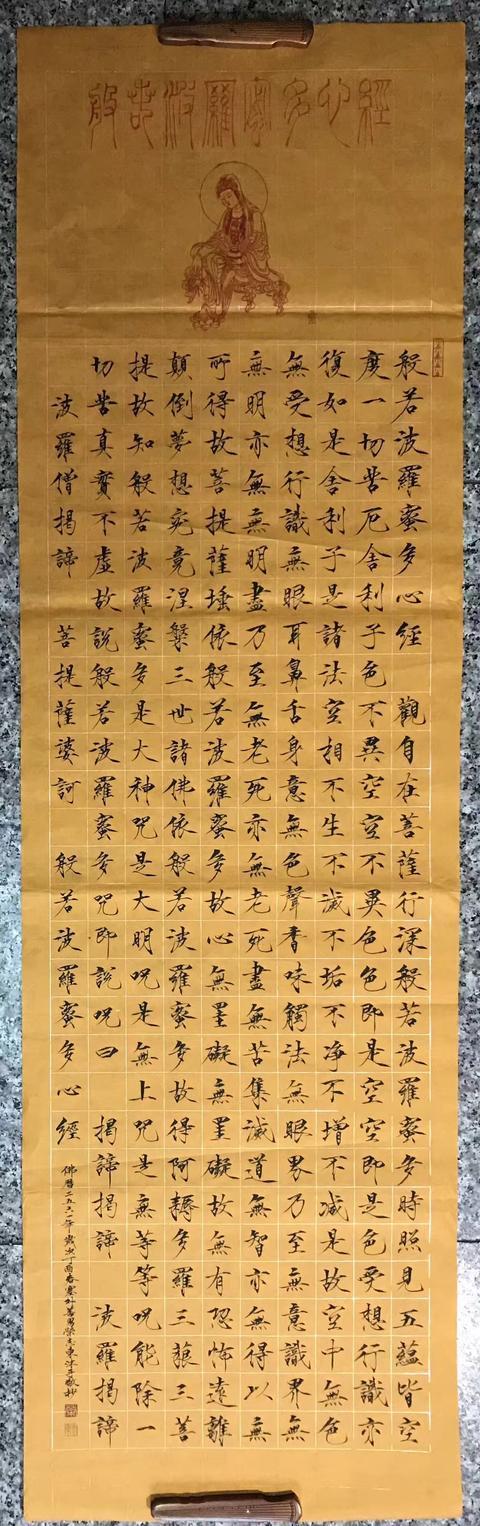 般若波羅蜜多心經
般若波羅蜜多心經 觀自在菩薩行深般若波羅蜜多時照見五蘊皆空
度一切苦厄舍利子色不異空空不異色色即是空空即是色受想行識亦
復如是舍利子是諸法空相不生不滅不垢不净不增不减是故空中無色
無受想行識無眼耳鼻舌身意無色聲香味觸法無眼界乃至無意識界無
無明亦無無明盡乃至無老死亦無老死盡無苦集滅道無智亦無得以無
所得故菩提薩埵依般若波羅蜜多故心無罣礙無罣礙故無有恐怖遠離
顛倒夢想究竟涅槃三世諸佛依般若波羅蜜多故得阿耨多羅三藐三菩
提故知般若波羅蜜多是大神咒是大明咒是無上咒是無等等咒能除一
切苦真實不虛故說般若波羅蜜多咒即說咒曰 揭諦揭諦 波羅揭諦
波羅僧揭諦 菩提薩婆訶 般若波羅蜜多心經
佛曆二五六一年歲次丁酉春 敬抄